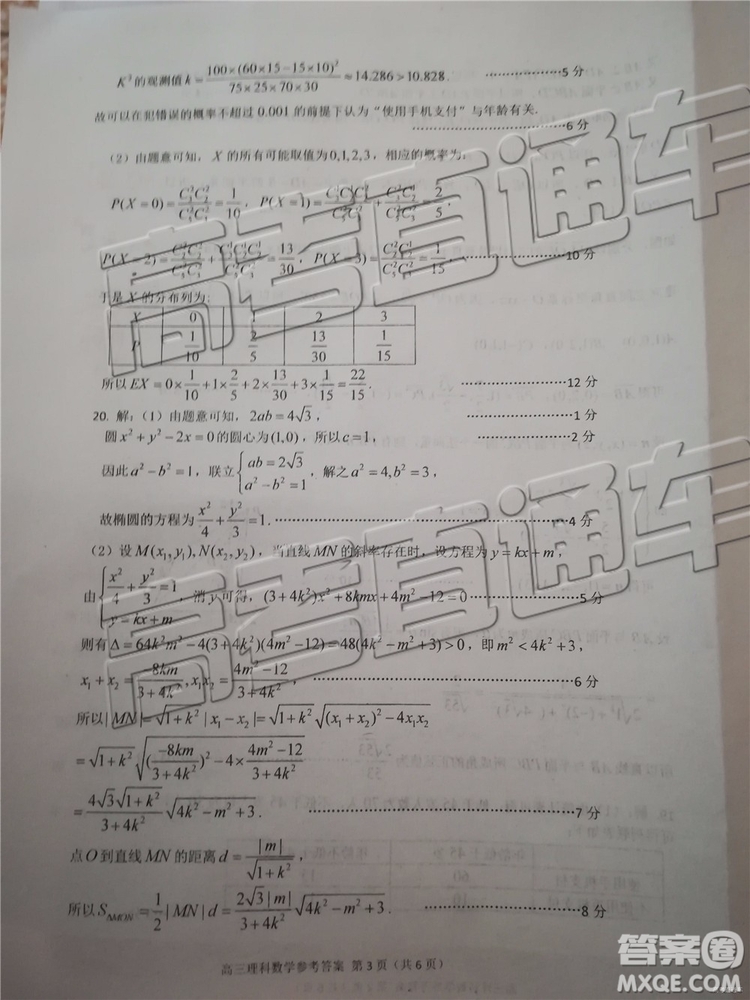 K²的观测值 k = 100×(60×15−15×10)² / 75×25×70×30 ≈ 14.286 > 10.828. ……………5分
故可以在犯错误的概率不超过 0.001 的前提下认为“使用手机支付”与年龄有关.
……………6分
(2)由题意可知, X 的所有可能取值为0,1,2,3,相应的概率为:
P(X=0) = 1/10, P(X=1) = 2/5,
P(X=2) = 13/30, P(X=3) = 1/15, ……………10分
于是 X 的分布列为:
X 0 1 2 3
P 1/10 2/5 13/30 1/15
所以 EX = 0×1/10 + 1×2/5 + 2×13/30 + 3×1/15 = 22/15. ……………12分
20. 解:(1)由题意可知, 2ab = 4√3, ……………1分
圆 x² + y² − 2x = 0 的圆心为 (1,0),所以 c = 1, ……………2分
因此 a² − b² = 1,联立 { ab = 2√3 , a² − b² = 1 ,解之 a² = 4, b² = 3,
故椭圆的方程为 x²/4 + y²/3 = 1. ……………4分
(2)设 M(x₁,y₁), N(x₂,y₂),当直线 MN 的斜率存在时,设方程为 y = kx + m,
由 { x²/4 + y²/3 = 1 , y = kx + m ,消 y 可得, (3+4k²)x² + 8kmx + 4m² − 12 = 0 ……………5分
则有 Δ = 64k²m² − 4(3+4k²)(4m²−12) = 48(4k² − m² + 3) > 0,即 m² < 4k² + 3,
x₁ + x₂ = −8km / 3+4k² , x₁x₂ = 4m²−12 / 3+4k² , ……………6分
所以 |MN| = √(1+k²) |x₁ − x₂| = √(1+k²) √((x₁+x₂)² − 4x₁x₂)
= √(1+k²) √((−8km / 3+4k²)² − 4× 4m²−12 / 3+4k²)
= 4√3 √(1+k²) / 3+4k² √(4k² − m² + 3). ……………7分
点 O 到直线 MN 的距离 d = |m| / √(1+k²) ,
所以 S△MON = 1/2 |MN| d = 2√3 |m| / 3+4k² √(4k² − m² + 3). ……………8分
高三理科数学参考答案 第3页(共6页)
高考直通车
高考直通车
答案圈
MXQE.COM